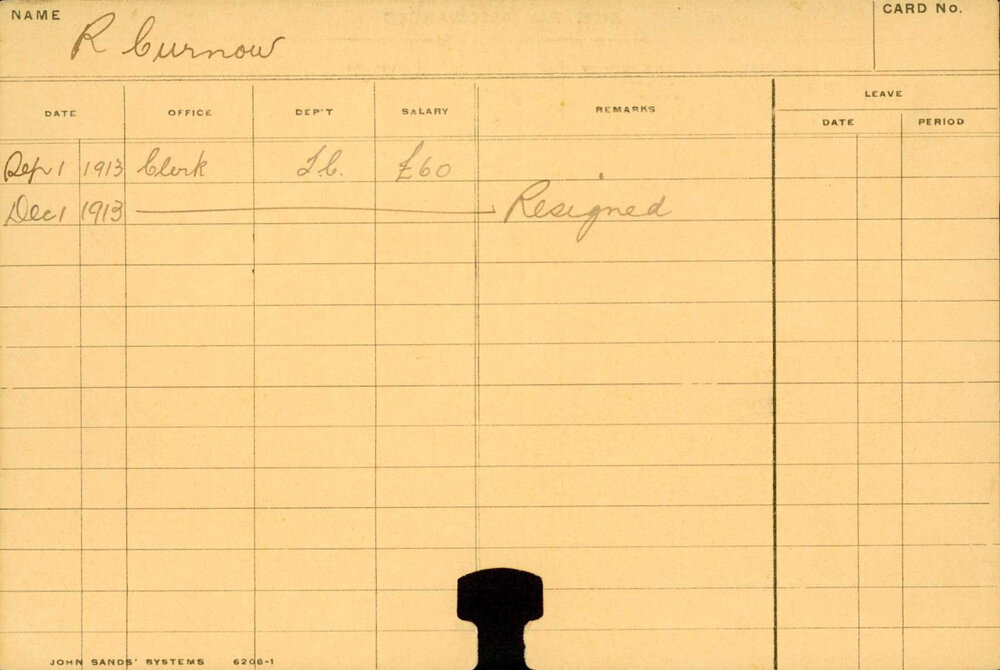 NAME R Curnow CARD No.
DATE OFFICE DEP'T SALARY REMARKS LEAVE
DATE PERIOD
Sep 1 1913 Clerk T.C. £60
Dec 1 1913 Resigned
JOHN SANDS' SYSTEMS 6206-1